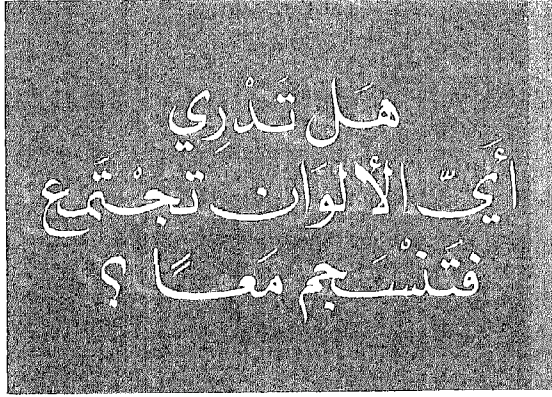 هَل تَدْرِي
أَيّ الألوَان تجْتَمع
فتَنْسَجم مَعًا ؟